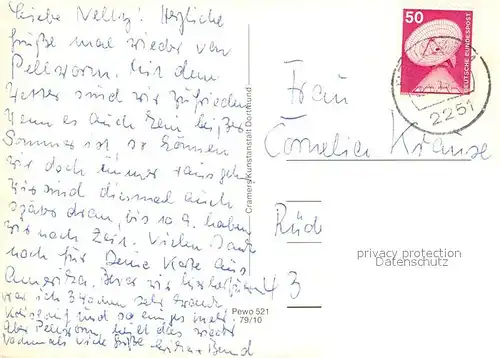 Liebe Nelly! Herzliche
Grüße mal wieder von
Pellworm. Mit dem
Wetter sind wir zufrieden
Wenn es auch kein heißer
Sommer ist so können
wir doch immer raus gehen
Wir sind diesmal auch
später dran, bis 10.9. haben
wir noch Zeit. Vielen Dank
noch für Deine Karte aus
Amerika. Bevor wir hierher
war ich 3 sehr krank
und so einiges mehr.
Aber Pellworm das wieder
Nochmals viele Grüße Bernd
Cramers Kunstanstalt Dortmund
Pewo 521
79/10
50
DEUTSCHE BUNDESPOST
2251
Frau
Cornelia Krause
Rüd
43
privacy protection
Datenschutz